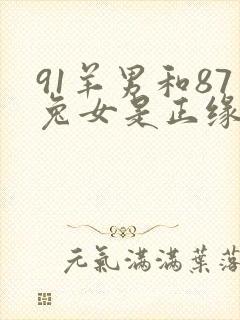 91羊男和87
兔女是正缘
元氣滿滿葉落